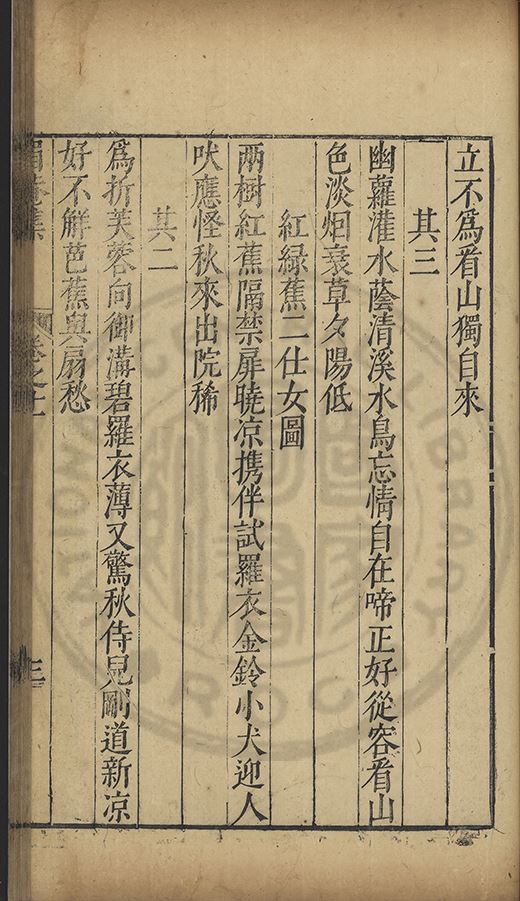 立不爲看山獨自來
其三
幽蘿灌水蔭清溪水鳥忘情自在啼正好從容看山
色淡烟衰草夕陽低
紅綠蕉二仕女圖
兩樹紅蕉隔禁扉曉凉携伴試羅衣金鈴小犬迎人
吠應怪秋來出院稀
其二
爲折芙蓉向御溝碧羅衣薄又驚秋侍兒剛道新凉
好不解芭蕉與扇愁
卷之十
三